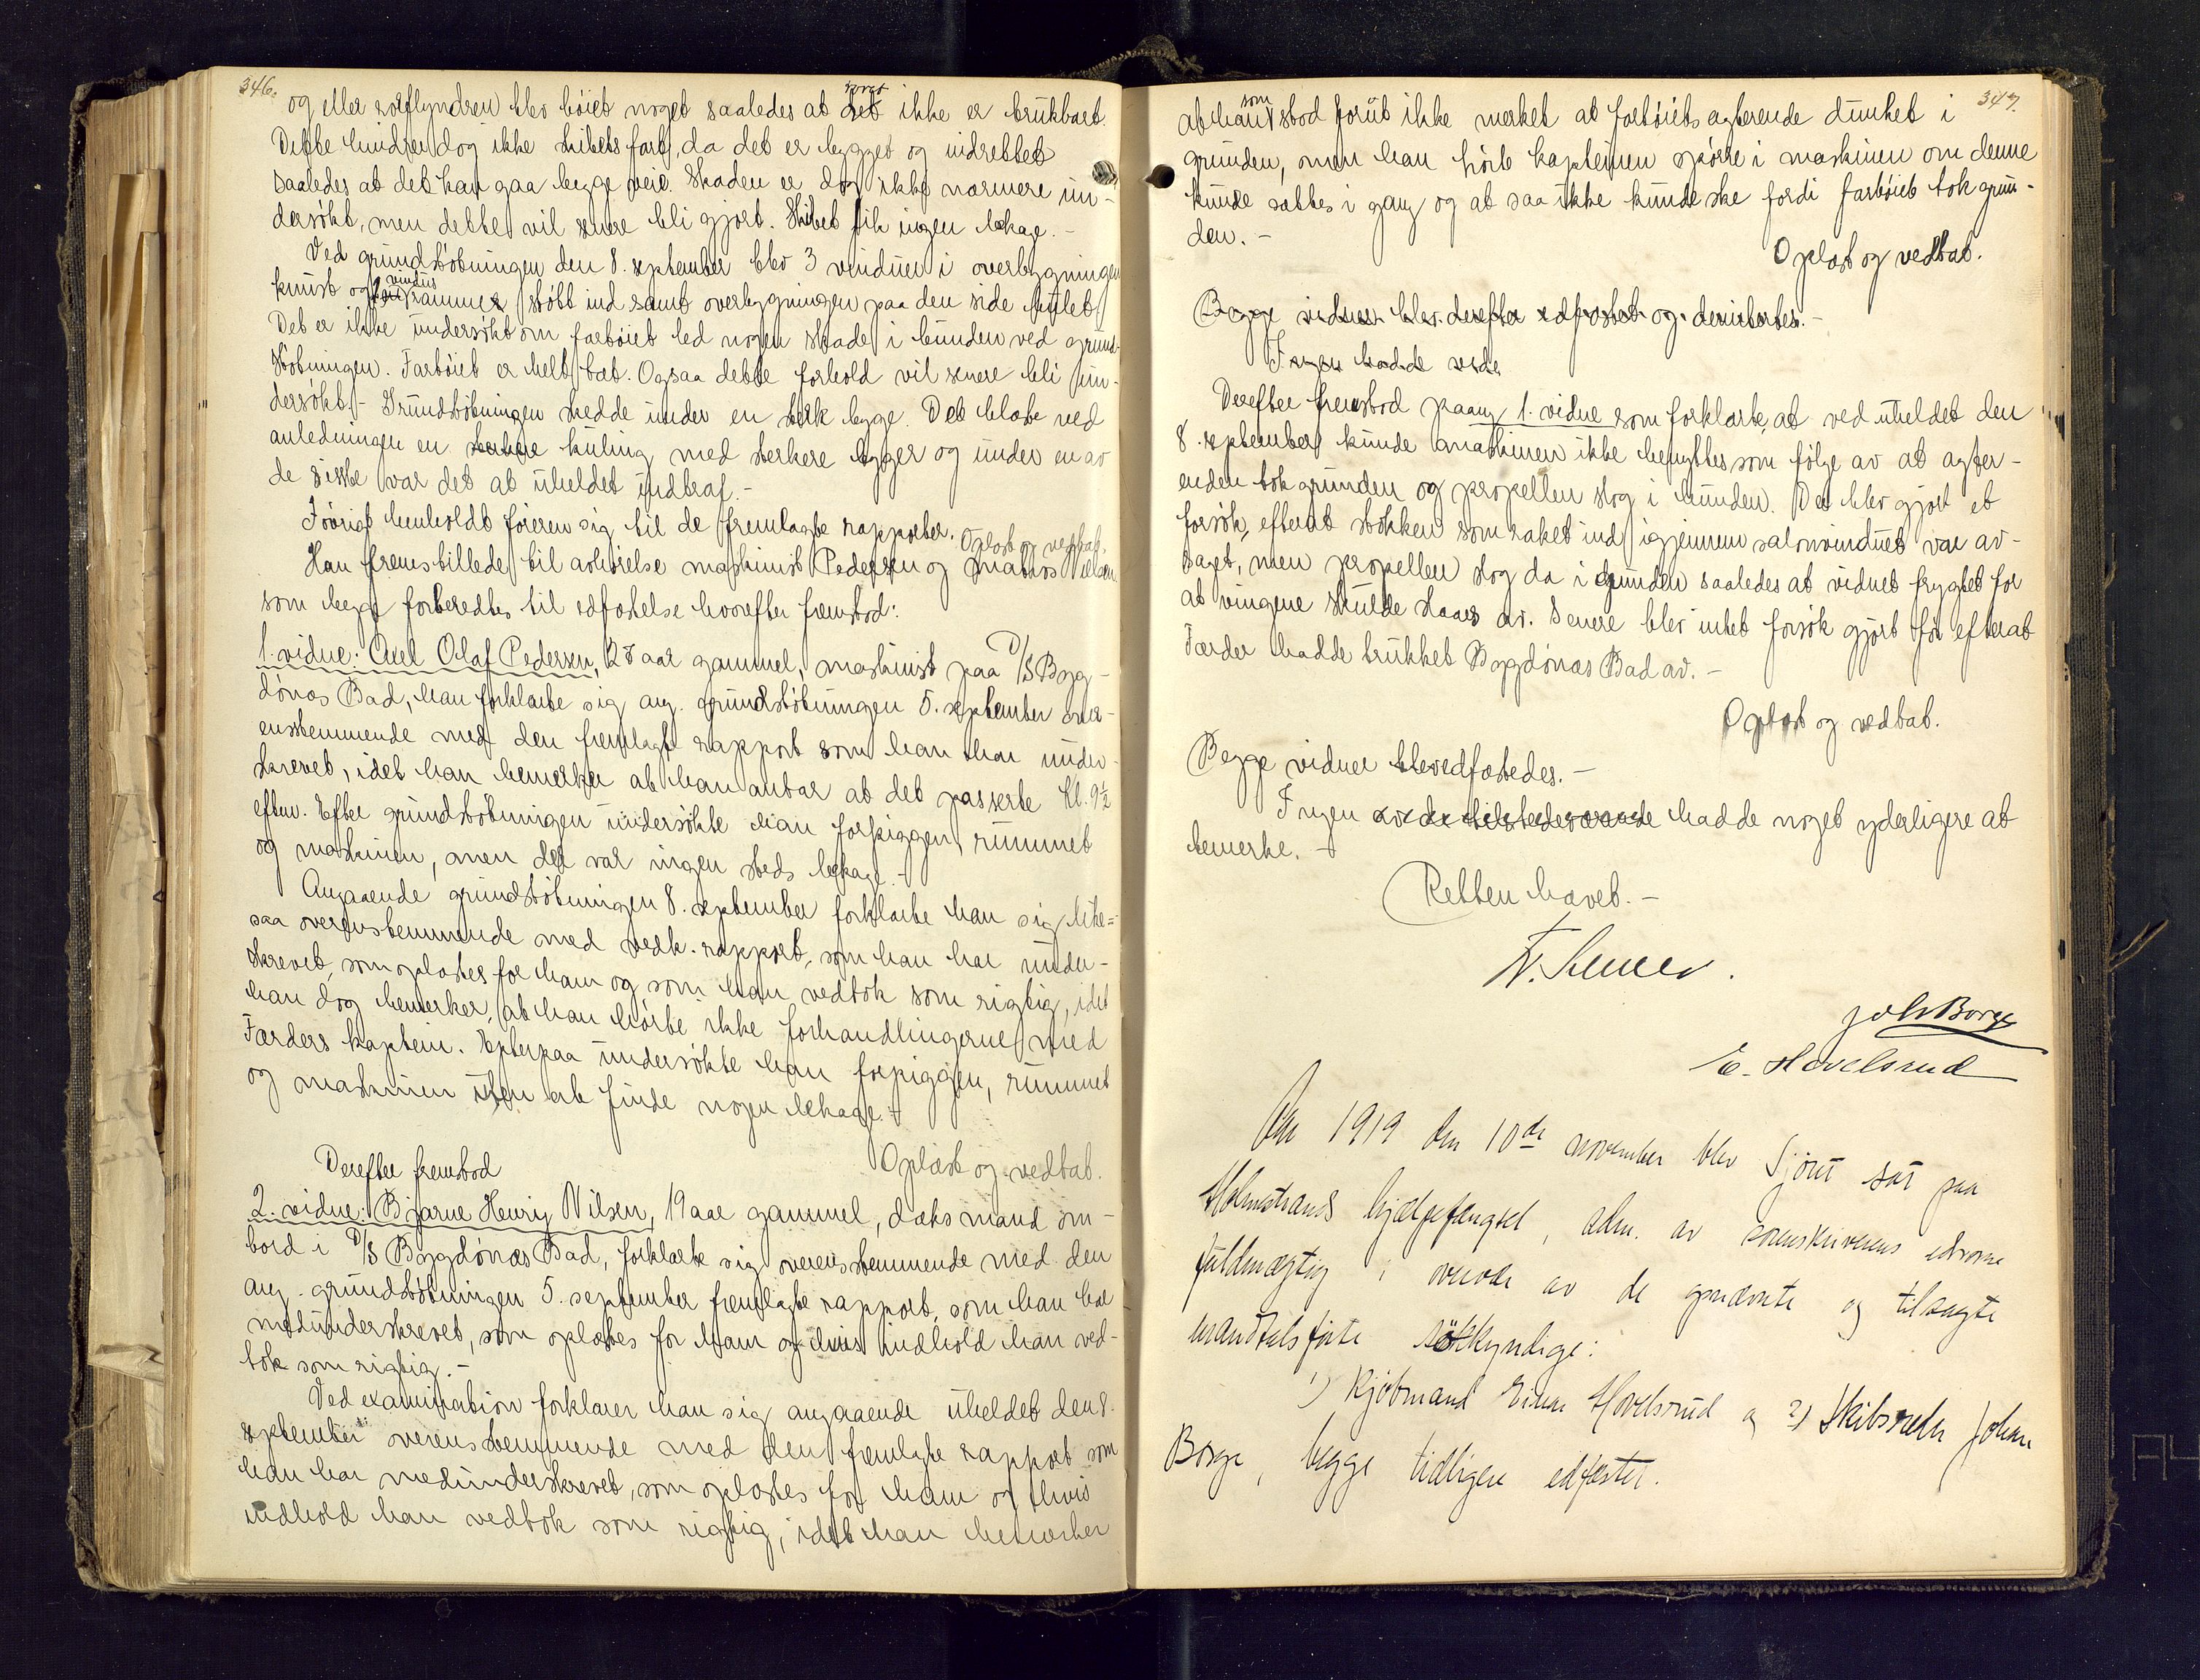 346.
og eller rorflyndren blev bøiet noget saaledes at roret ikke er brukbart.
Dette hindrer dog ikke skibets fart, da det er bygget og indrettet
saaledes at det kan gaa begge veie. Skaden er dog ikke nærmere un-
dersøkt, men dette vil senere bli gjort. Skibet fik ingen lekage. -
Ved grundstøtningen den 8. september blev 3 vinduer i overbygningen
knust og vindusrammer støtt ind samt overbygningen paa den side
Det er ikke undersøkt om fartøiet led nogen skade i bunden ved grund-
støtningen. Fartøiet er helt tæt. Ogsaa dette forhold vil senere bli un-
dersøkt. - Grundstøtningen skedde under en sterk bygge. Det blæste ved
anledningen en kuling med sterkere bygger og under en av
de siste var det at uheldet indtraf. -
Iøvrigt henholdt føreren sig til de fremlagte rapporter. Oplæst og vedtat.
Han fremstillede til avhørelse maskinist Pedersen og matros Nilsen
som begge forberedtes til edfæstelse hvorefter fremstod:
1. vidne: Axel Olaf Pedersen, 28 aar gammel, maskinist paa D/S Bygg-
dönæs Bad, han forklarte sig ang. grundstøtningen 5. september over-
ensstemmende med den fremlagte rapport som han har under-
skrevet, idet han bemerker at han antar at det passerte kl. 9½
efterm. Efter grundstøtningen undersøkte han forpiggen, rummet
og maskinen, men der var ingen steds lekage. -
Angaaende grundstøtningen 8. september forklarte han sig like-
saa overensstemmende med vedk. rapport, som han har under-
skrevet, som oplæstes for ham og som han vedtok som rigtig, idet
han dog bemerker, at han hørte ikke forhandlingerne med
Færders kaptein. Efterpaa undersøkte han forpiggen, rummet
og maskinen uten at finde nogen lekage. -
Oplæst og vedtat.
Derefter fremstod
2. vidne: Bjarne Henry Nilsen, 19 aar gammel, dæksmand om-
bord i D/S Byggdönæs Bad, forklarte sig overensstemmende med den
ang. grundstøtningen 5. september fremlagte rapport, som han har
medunderskrevet, som oplæstes for ham og hvis indhold han ved-
tok som rigtig. -
Ved examination forklarer han sig angaaende uheldet den 8.
september overensstemmende med den fremlagte rapport som
han har medunderskrevet, som oplæstes for ham og hvis
indhold han vedtok som rigtig, idet han bemerker
347.
at han som stod forut ikke merket at fartøiets agterende dunket i
grunden, men han hørte kapteinen spørre i maskinen om denne
kunde sættes i gang og at saa ikke kunde ske fordi fartøiet tok grun-
den. -
Oplæst og vedtat.
Begge vidner blev derefter edfæstet og demitertes. -
Ingen hadde vide
Derefter fremstod paany 1. vidne som forklarte, at ved uheldet den
8. september kunde maskinen ikke benyttes som følge av at agter-
enden tok grunden og propellen slog i bunden. Der blev gjort et
forsøk, efterat stokken som raket ind igjennem salonvinduet var av-
saget, men propellen slog da i grunden saaledes at vidnet frygtet for
at vingene skulde slaaes av. Senere blev intet forsøk gjort før efterat
Færder hadde trukket Byggdönæs Bad av. -
Oplæst og vedtat.
Begge vidner edfæstedes. -
Ingen av de tilstedeværende hadde noget yderligere at
bemerke. -
Retten hævet. -
Joh Borge
E. Hovelsrud
Aar 1919 den 10de november blev Sjøret sat paa
Holmestrands hjælpefængsel, adm. av sorenskriverens edsvorne
fuldmægtig i overvær av de opnævnte og tilsagte
mandtalsførte søkyndige:
1) Kjøbmand Einar Hovelsrud og 2) Skibsreder Johan
Borge, begge tidligere edfæstet.